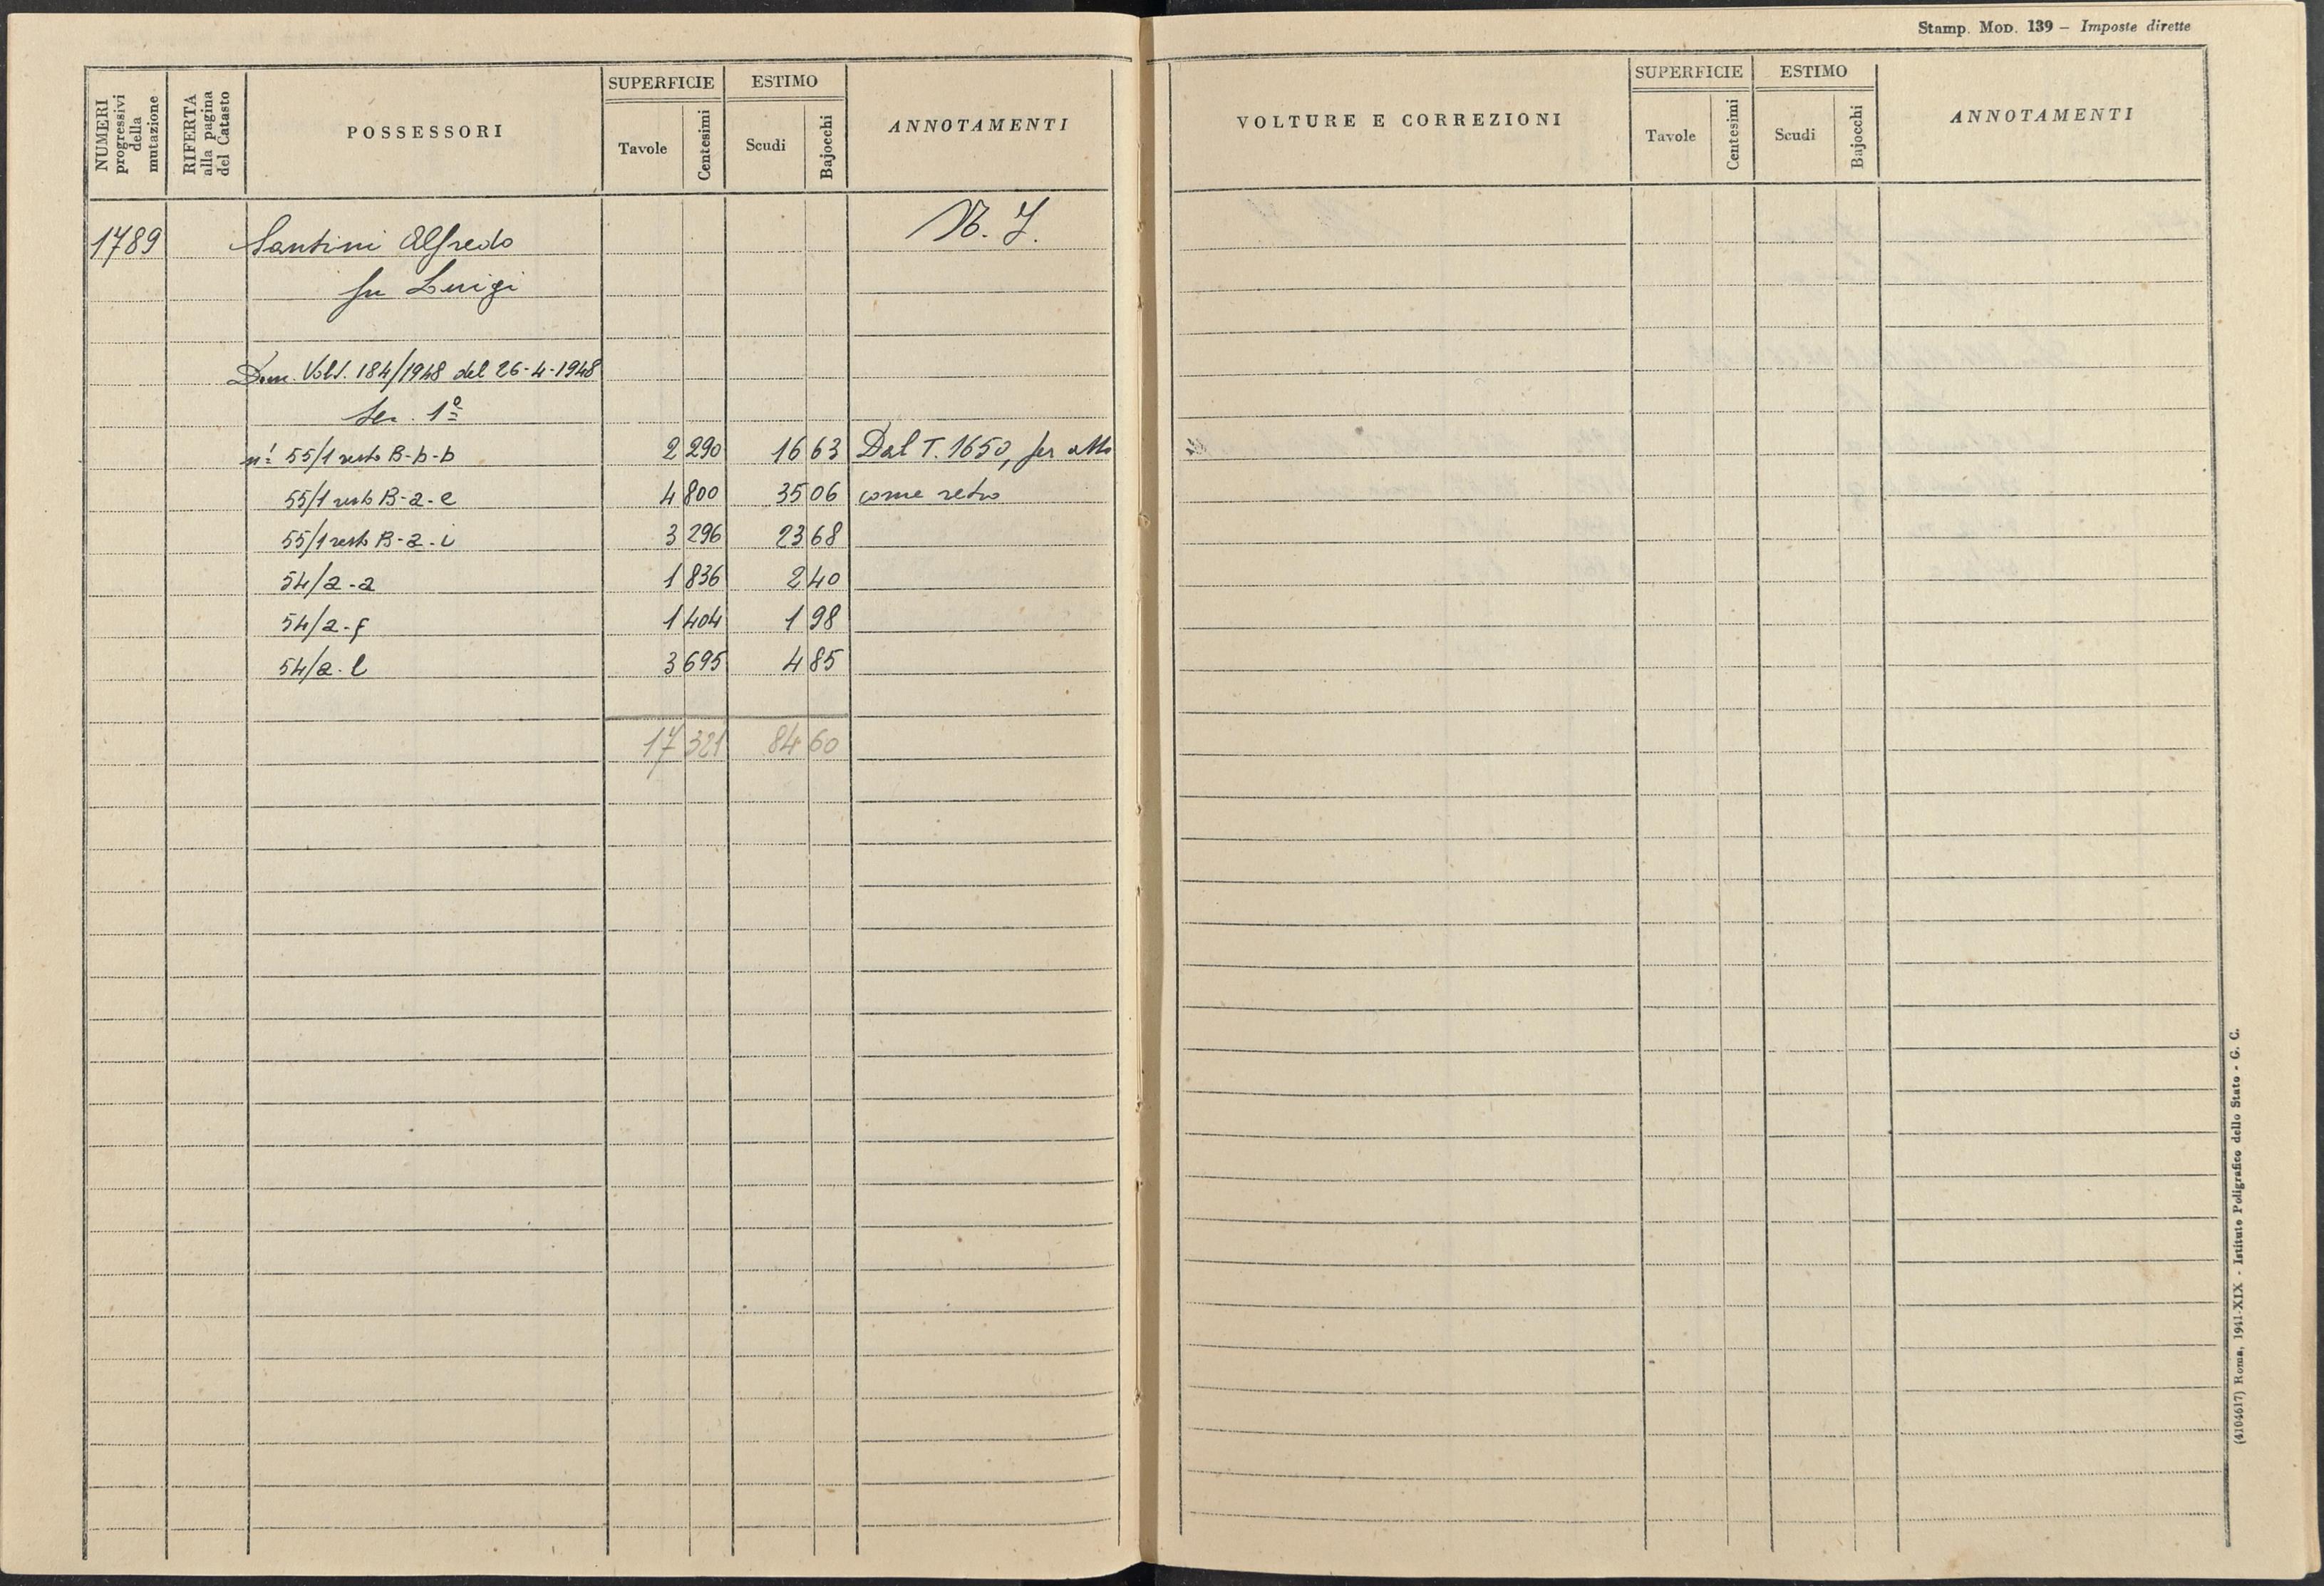 Stamp. Mod. 139 – Imposte dirette
NUMERI progressivi della mutazione
RIFERTA alla pagina del Catasto
POSSESSORI
SUPERFICIE
Tavole
Centesimi
ESTIMO
Scudi
Bajocchi
ANNOTAMENTI
VOLTURE E CORREZIONI
SUPERFICIE
Tavole
Centesimi
ESTIMO
Scudi
Bajocchi
ANNOTAMENTI
1789 Santini Alfredo
fu Luigi
Dom. Volt. 184/1948 del 26-4-1948
Ser. 1ª
nⁱ 55/1 resto B-b-b 2 290 16 63 Dal T. 1650, per atto
55/1 resto B-a-e 4 800 35 06 come retro
55/1 resto B-a-i 3 296 23 68
54/a-a 1 836 2 40
54/a-f 1 404 1 98
54/a-l 3 695 4 85
17 321 84 60
(4104617) Roma, 1941-XIX - Istituto Poligrafico dello Stato - G. C.